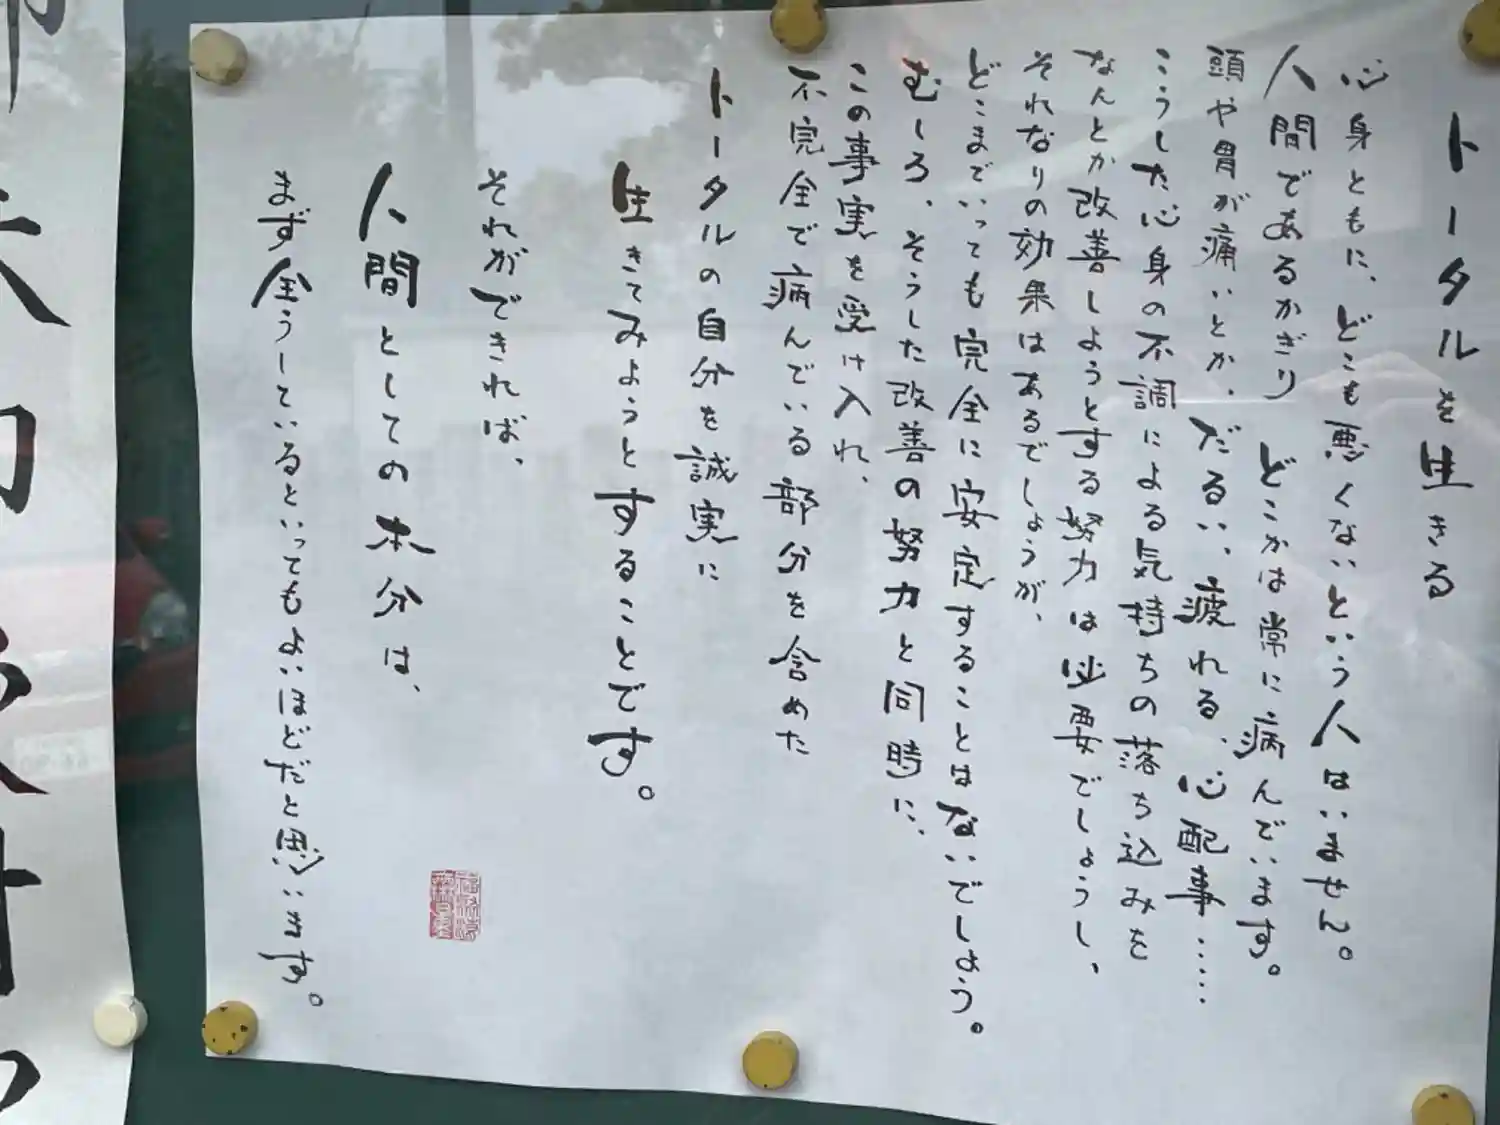 トータルを生きる
心身ともに、どこも悪くないという人はいません。
人間であるかぎり どこかは常に病んでいます。
頭や胃が痛いとか、だるい、疲れる、心配事……
こうした心身の不調による気持ちの落ち込みを
なんとか改善しようとする努力は必要でしょうし、
それなりの効果はあるでしょうが、
どこまでいっても完全に安定することはないでしょう。
むしろ、そうした改善の努力と同時に、
この事実を受け入れ、
不完全で病んでいる部分を含めた
トータルの自分を誠実に
生きてみようとすることです。
それができれば、
人間としての本分は、
まず全うしているといってもよいほどだと思います。